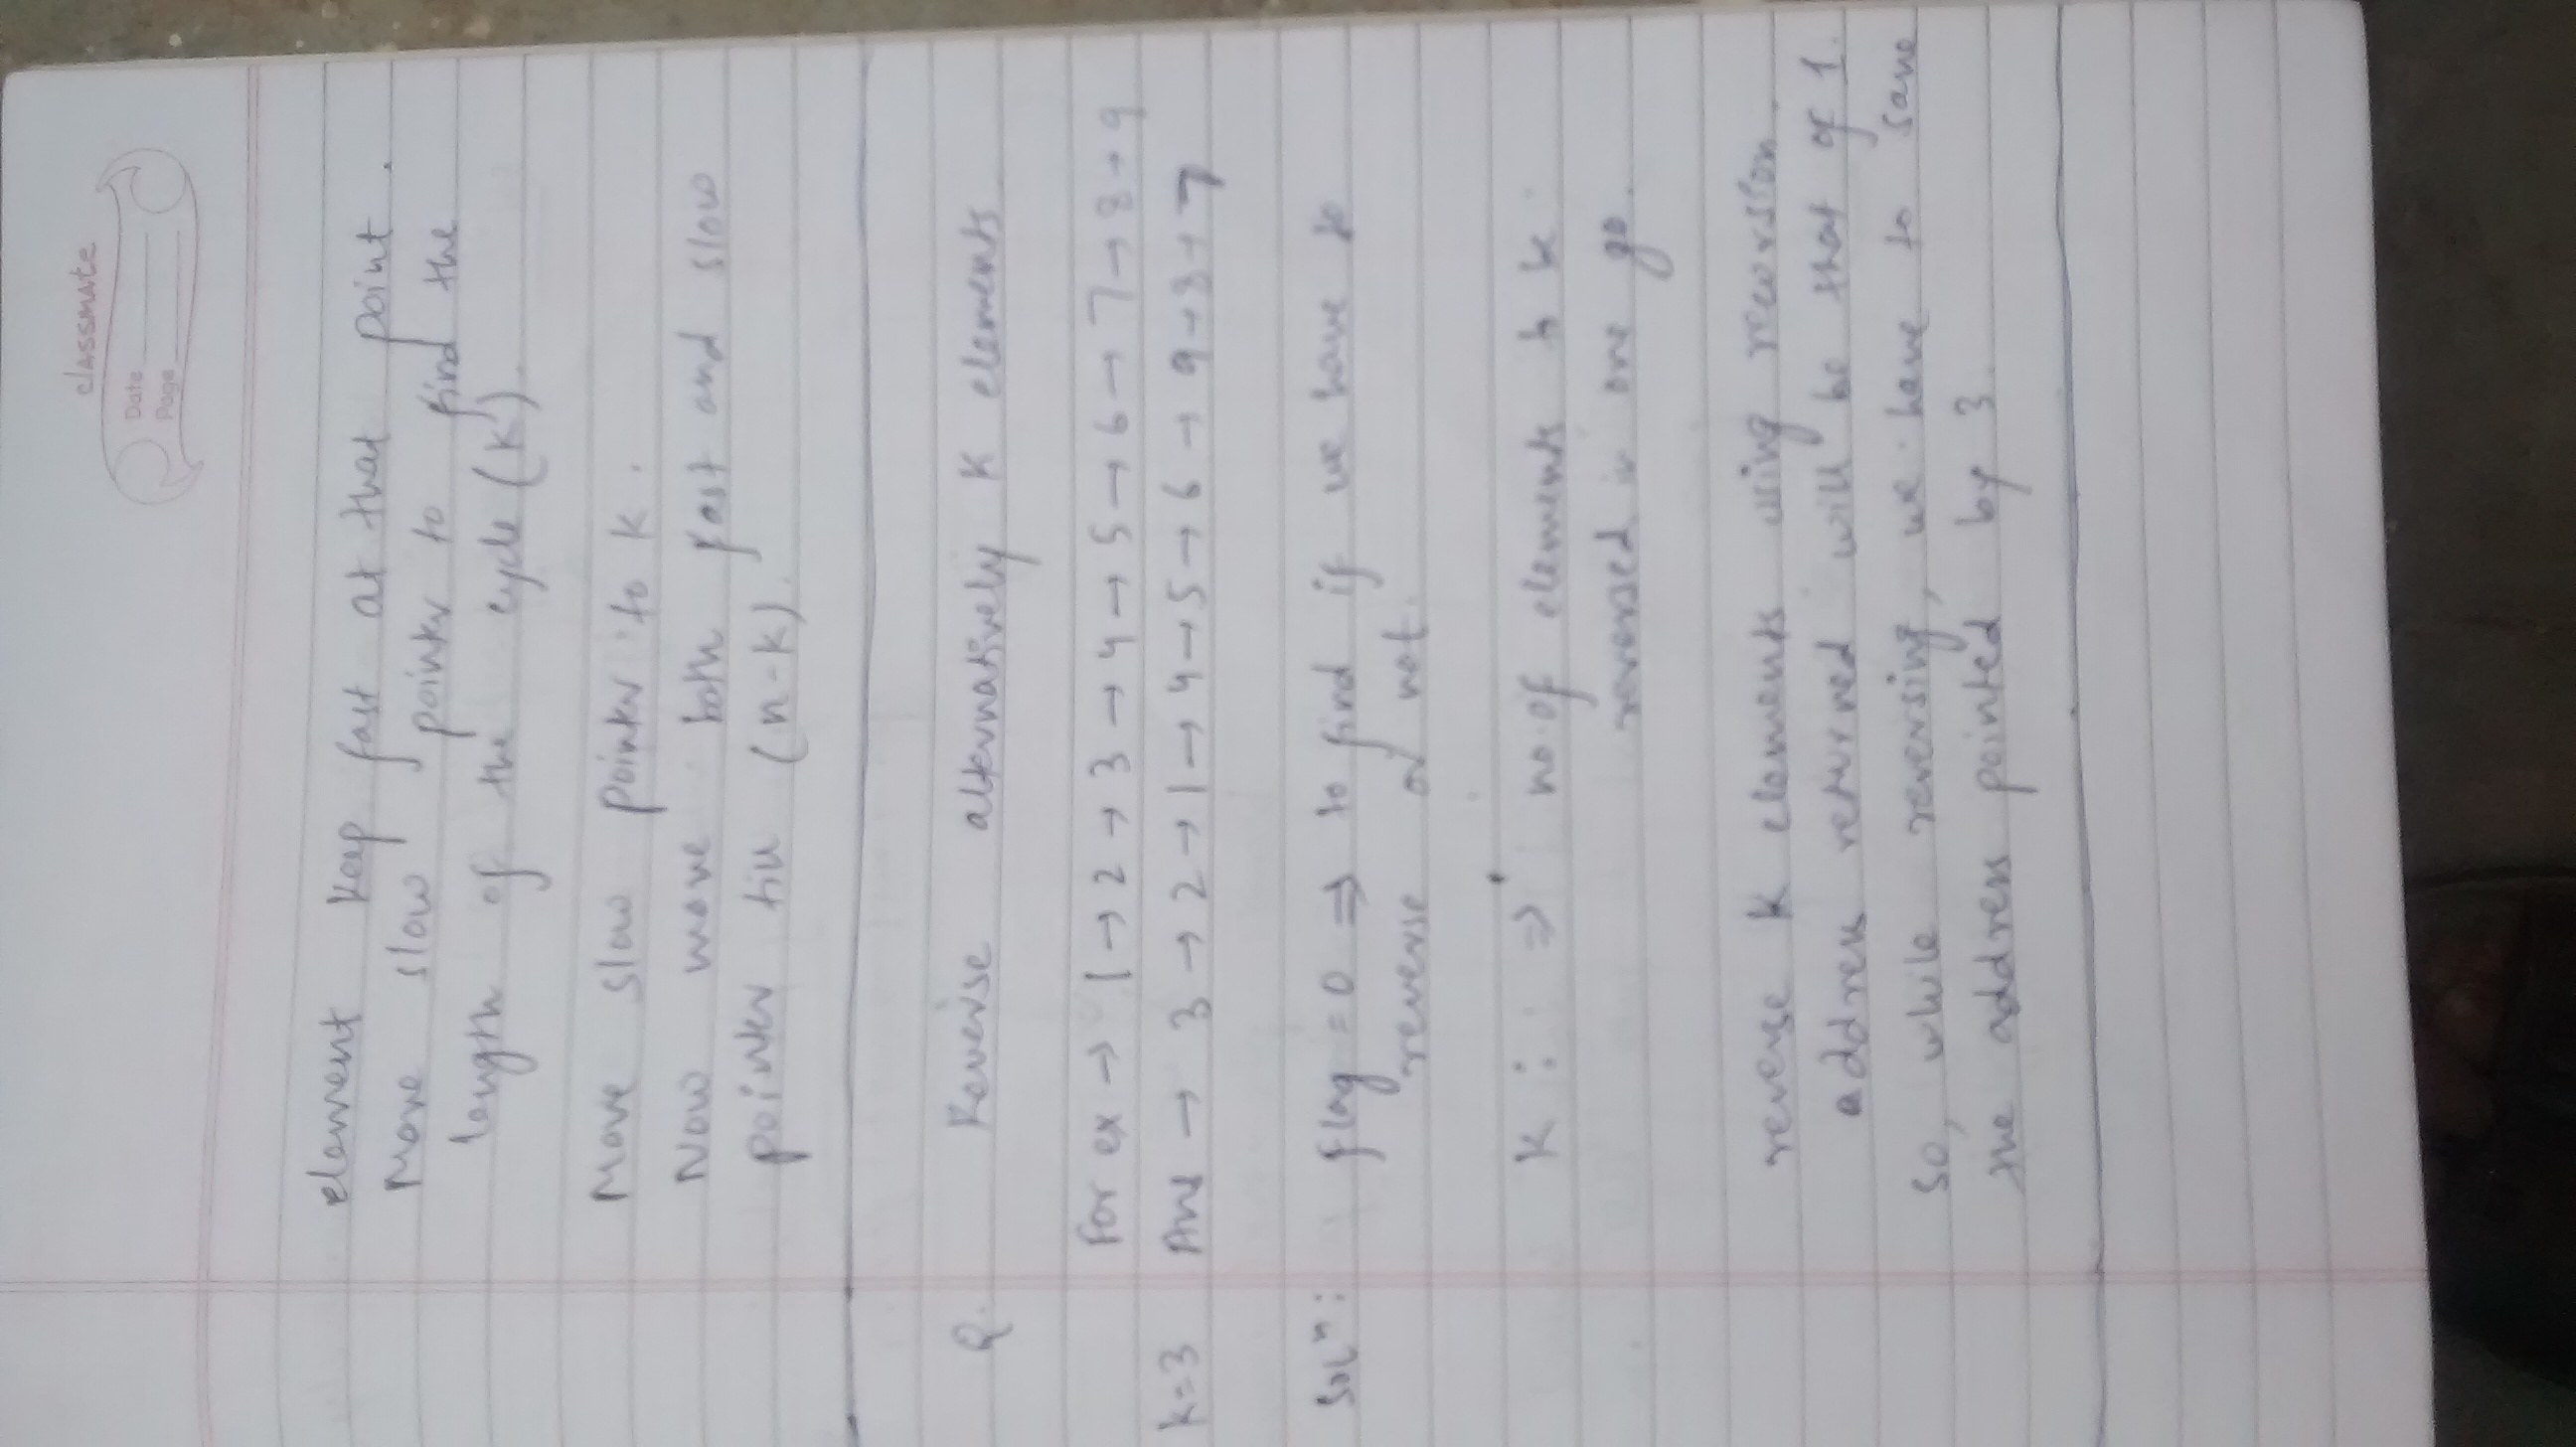 classmate
Date
Page
element keep fast at that point.
Move slow pointer to find the
length of the cycle (K).
Move slow pointer to K.
Now move both fast and slow
pointer till (n-k).
Q. Reverse alternatively K elements
For ex → 1 → 2 → 3 → 4 → 5 → 6 → 7 → 8 → 9
k=3 Ans → 3 → 2 → 1 → 4 → 5 → 6 → 9 → 8 → 7
Solⁿ: flag = 0 ⇒ to find if we have to
reverse or not.
K : ⇒ no of elements to k.
reversed in one go.
reverse K elements using recursion.
address returned will be that of 1.
So, while reversing, we have to save
the address pointed by 3.